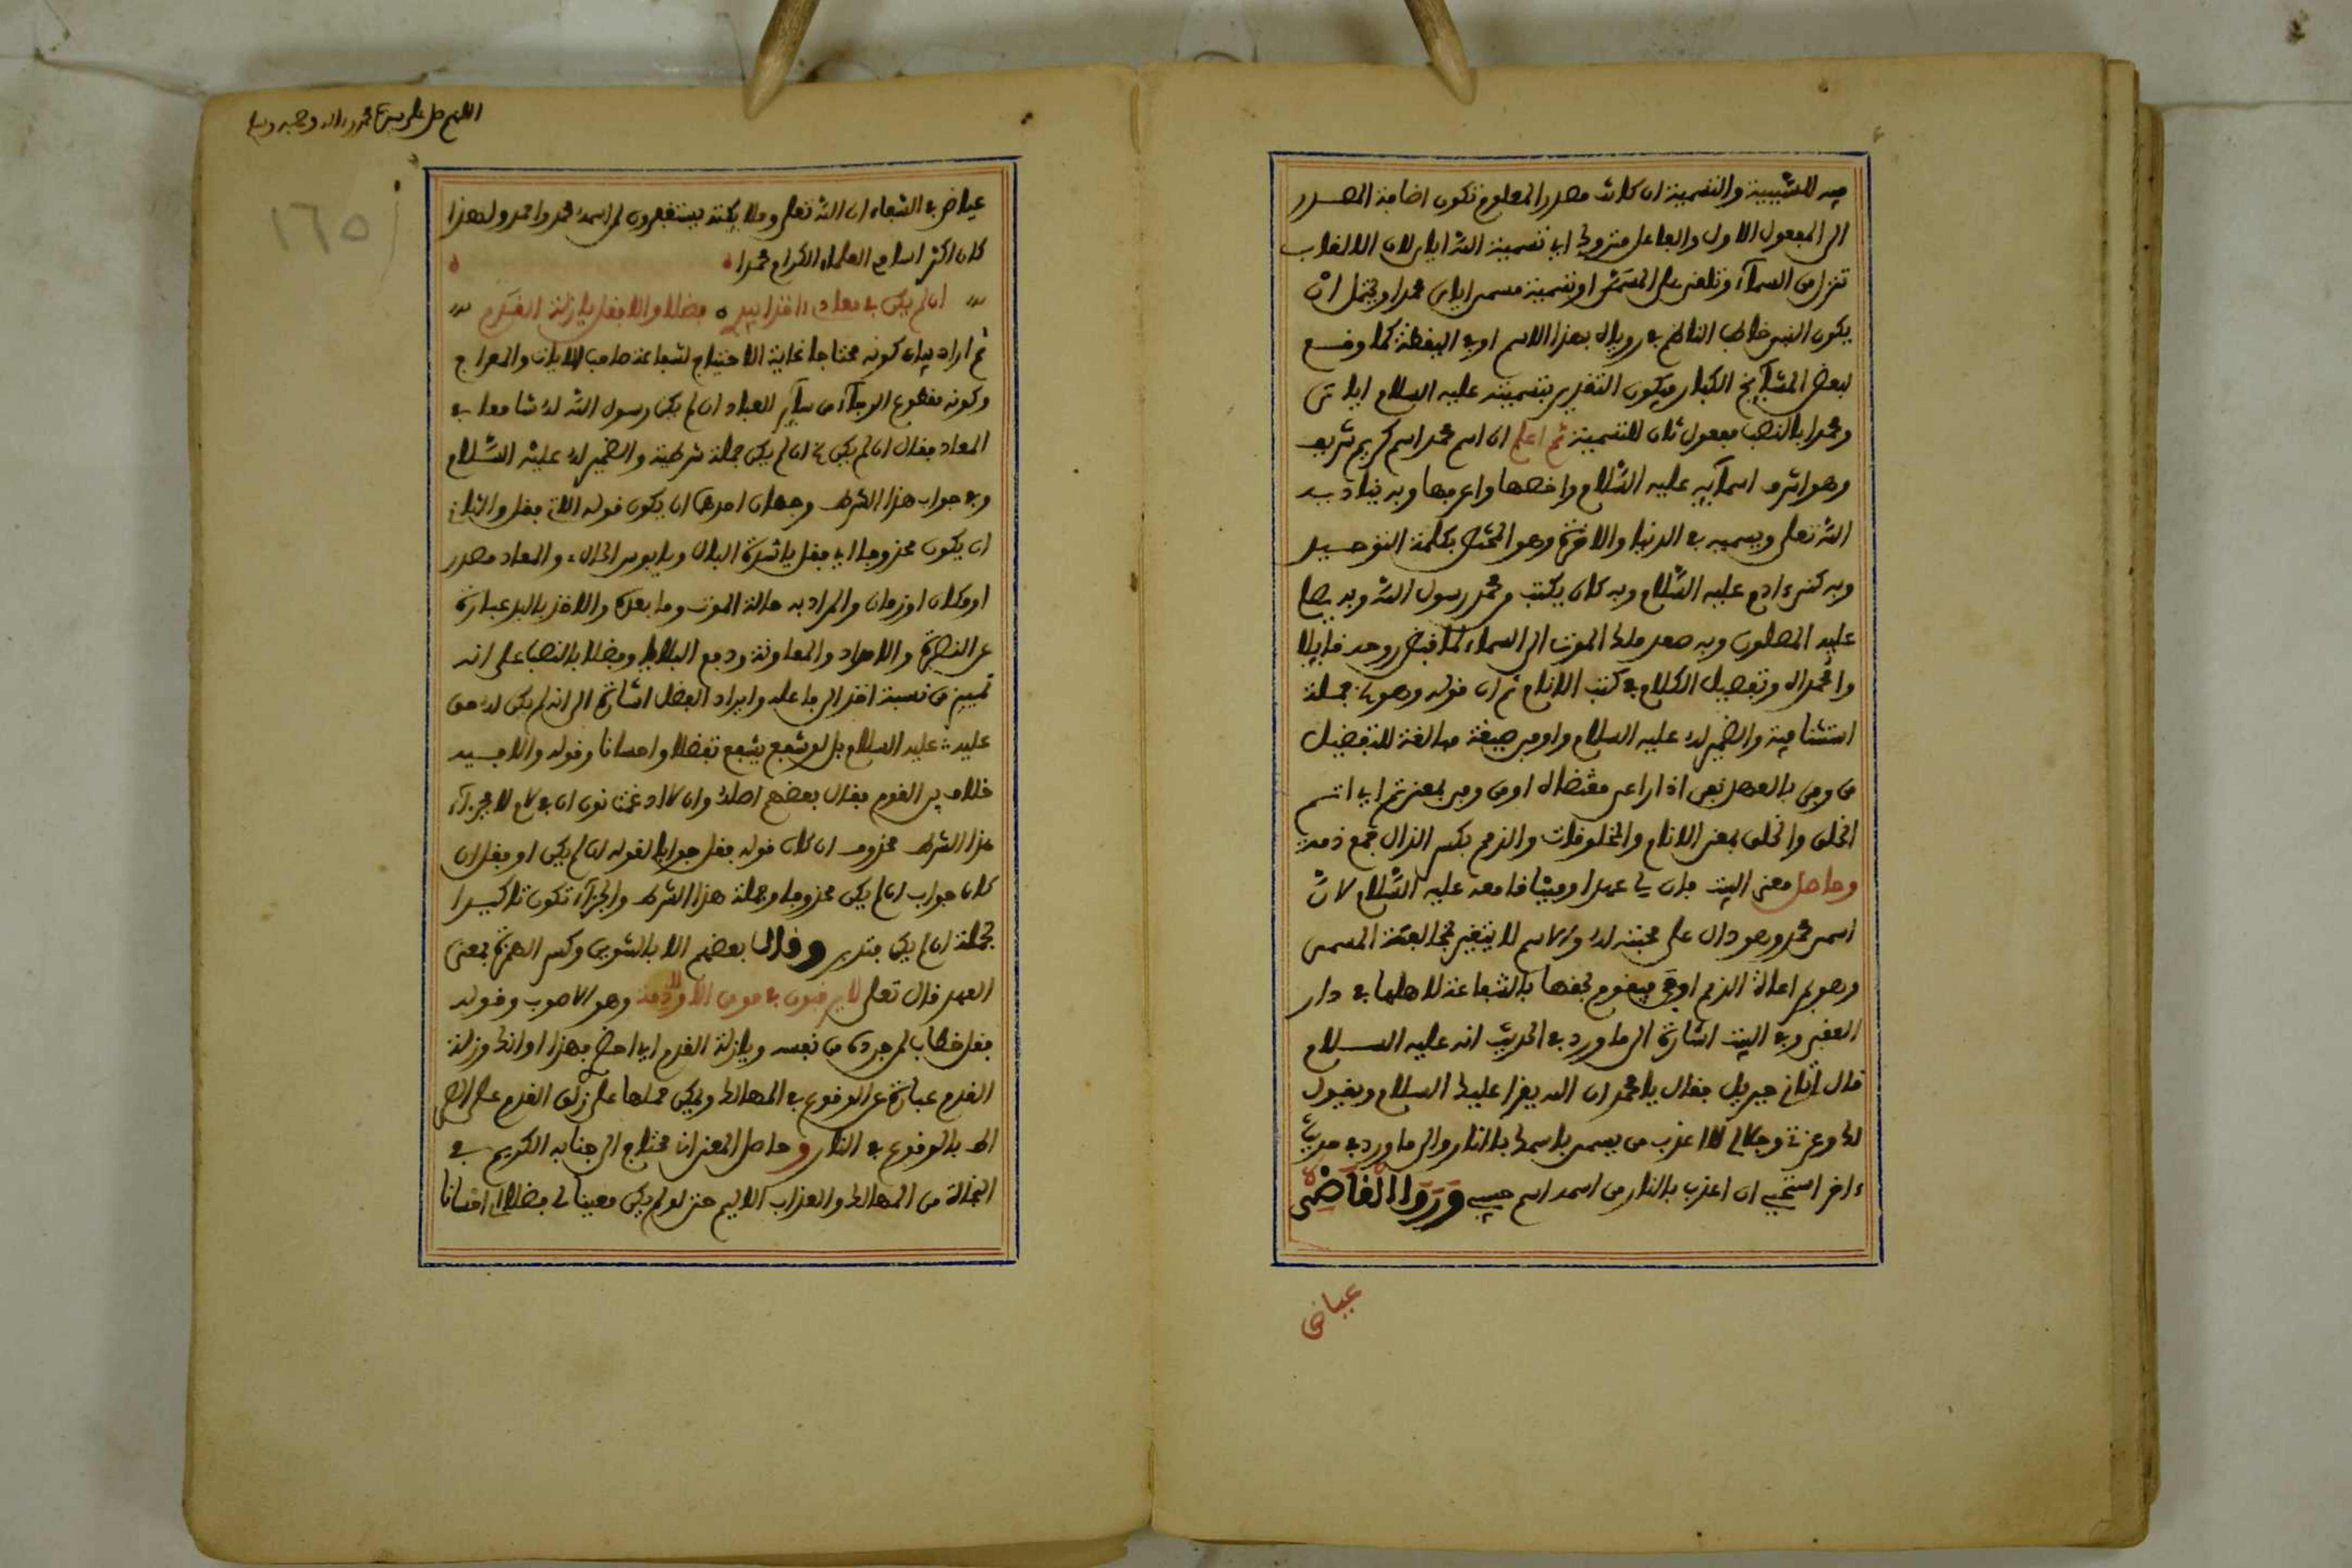 فيه للسببية والتسمية ان كانت مصدر المعلوم تكون اضافة المصدر
الى المفعول الاول والفاعل متروك اي تسمية الله اياي لان الالقاب
تنزل من السماء وتلقى على المسمى او تسمية مسمى اياي محمدا ويحتمل ان
يكون النبي خاطب الناظم في رؤياه بهذا الاسم او في اليقظة كما وقع
لبعض المشايخ الكبار فيكون التقدير بتسميته عليه السلام اياي
ومحمدا بالنصب مفعول ثان للتسمية ثم اعلم ان اسم محمد اسم كريم شريف
وهو اشرف اسمآيه عليه السلام واخصها واعرفها وبه يناديه
الله تعلى ويسميه في الدنيا والاخرة وهو المختص بكلمة التوحيد
وبه كنى ءادم عليه السلام وبه كان يكتب محمد رسول الله وبه يصلي
عليه المصلون وبه صعد ملك الموت الى السماء لما قبض روحه قايلا
وا محمداه وتفصيل الكلام في كتب الانام ثم ان قوله وهو جملة
استئنافية والضمير له عليه السلام واوفى صيغة مبالغة للتفضيل
من وفى بالعهد يفي اذا راعى مقتضاه او من وفى بمعنى تم اي اتم
الخلق والخلق بمعنى الانام والمخلوقات والذمم بكسر الذال جمع ذمة
وحاصل معنى البيت فان لي عهدا وميثاقا معه عليه السلام لان
اسمي محمد وهو دال على محبته له والاسم لا يتغير لمخالفة المسمى
وهو في اعانة الذمم اوفى فيقوم بحقها بالشفاعة لاهلها في دار
العقبى وفي البيت اشارة الى ما ورد في الحديث انه عليه السلام
قال اتاني جبريل فقال يا محمد ان الله يقرا عليك السلام ويقول
لك وعزتي وجلالي لا اعذب من يسمى باسمك بالنار والى ما ورد في حديث
ءاخر استحيي ان اعذب بالنار من اسمه اسم حبيبي وروى القاضي
عياض
اللهم صل على سيدنا محمد واله وصحبه وسلم
١٦٥
عياض في الشفاء ان الله تعلى وملايكته يستغفرون لمن اسمه محمد واحمد ولهذا
كان اكثر اسامي العلماء الكرام محمدا
ان لم يكن في معادي ءاخذا بيدي فضلا والا فقل يا زلة القدم
ثم اراد بيان كونه محتاجا غاية الاحتياج لشفاعة صاحب الايات والمعراج
وكونه مقطوع الرجآء من سآير العباد ان لم يكن رسول الله له شافعا في
المعاد فقال ان لم يكن ان لم يكن جملة شرطية والضمير له عليه السلام
وفي جواب هذا الشرط وجهان احدهما ان يكون قوله الاتي فقل والثاني
ان يكون محذوفا اي فقل يا شدة البال ويا بوس الحال والمعاد مصدر
او مكان او زمان والمراد به حالة الموت وما بعده والاخذ باليد عبارة
عن النصرة والامداد والمعاونة ودفع البلايا وفضلا بالنصب على انه
تمييز من نسبة اخذ الى فاعله وايراد الفضل اشارة الى انه لم يكن له حق
عليه عليه السلام بل لو شفع يشفع تفضلا واحسانا وقوله والا فيه
خلاف بين القوم فقال بعضهم اصله وان لا ادغمت نون ان في لام لا فجزآء
هذا الشرط محذوف ان كان قوله فقل جوابا لقوله ان لم يكن او فقل ان
كان جواب ان لم يكن محذوفا وجملة هذا الشرط والجزآء تكون تاكيدا
لجملة ان لم يكن فتدبر وقال بعضهم الا بالتنوين وكسر الهمزة بمعنى
العهد قال تعلى لا يرقبون في مومن الا ولا ذمة وهو الاصوب وقوله
فقل خطاب لمن جرده من نفسه ويا زلة القدم اي احضري فهذا اوانك وزلة
القدم عبارة عن الوقوع في المهالك ويمكن حملها على زلق القدم على الصر
اط بالوقوع في النار وحاصل المعنى ان محتاج الى جنابه الكريم في
النجاة من المهالك والعذاب الاليم حتى لو لم يكن معينا لي فضلا او احسانا